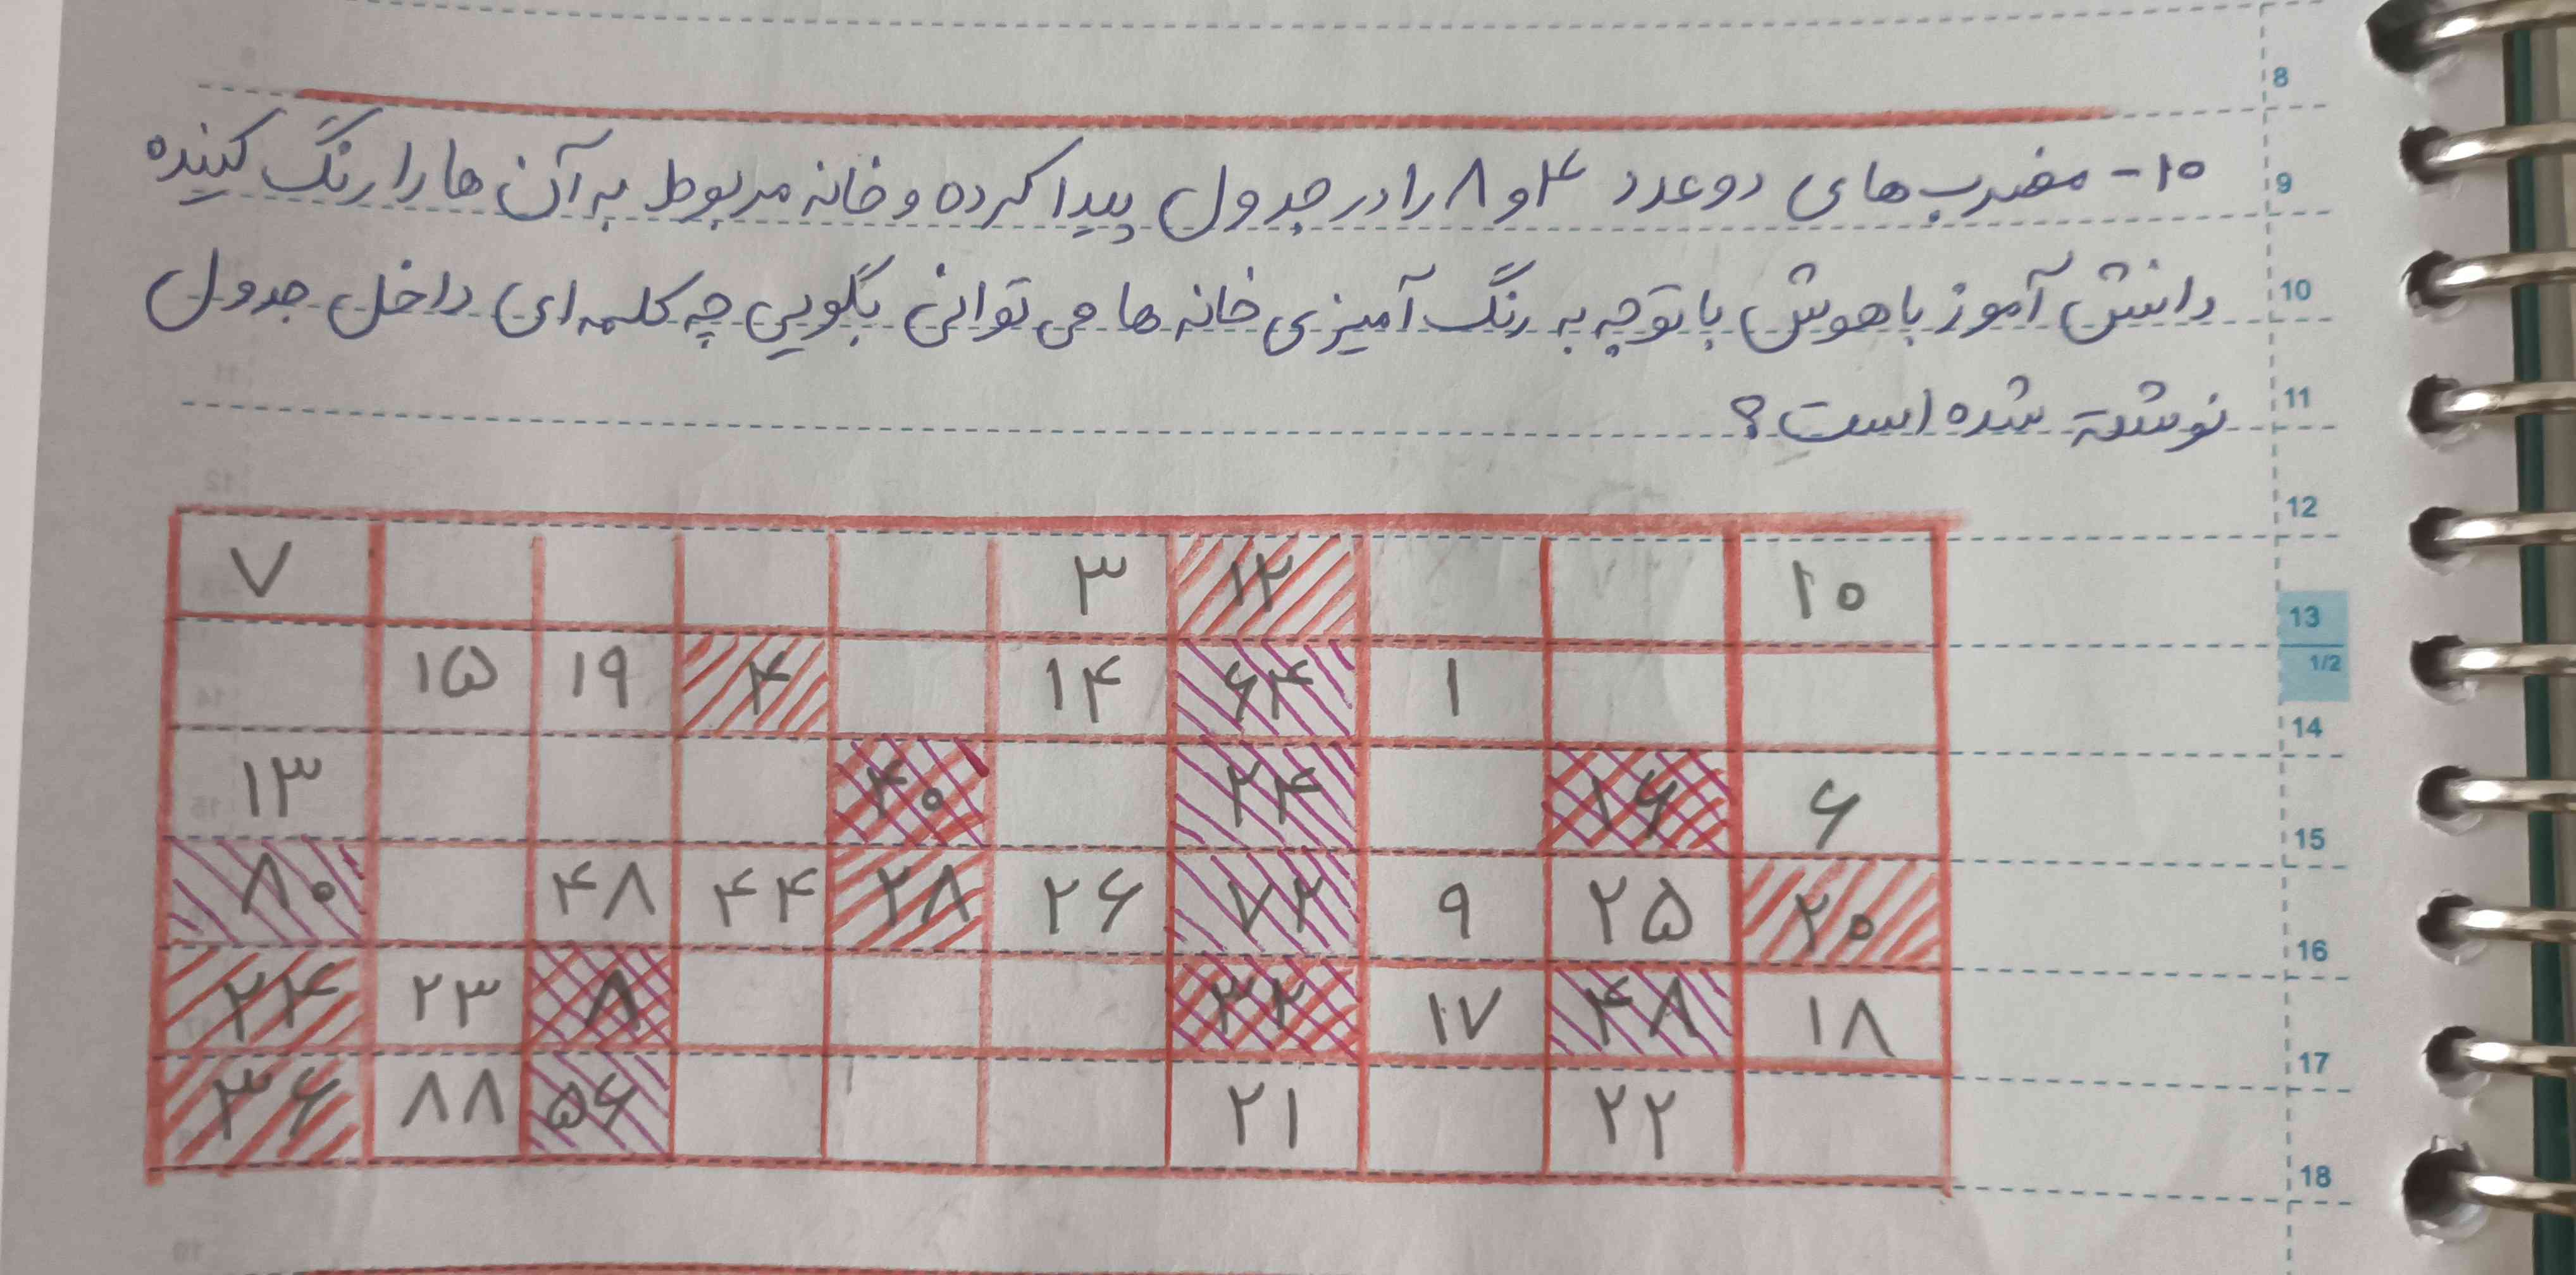 ۱۰- مضرب های دو عدد ۴ و ۸ را در جدول پیدا کرده و خانه مربوط به آن ها را رنگ کنید
دانش آموز باهوش با توجه به رنگ آمیزی خانه ها می توانی بگویی چه کلمه ای داخل جدول
نوشته شده است؟
۷ ۳ ۱۲ ۱۰
۱۵ ۱۹ ۴ ۱۴ ۶۴ ۱
۱۳ ۴۰ ۲۴ ۱۶ ۶
۸۰ ۴۸ ۴۴ ۲۸ ۲۶ ۷۲ ۹ ۲۵ ۲۰
۲۴ ۲۳ ۸ ۳۲ ۱۷ ۴۸ ۱۸
۳۶ ۸۸ ۵۶ ۲۱ ۲۲
8
9
10
11
12
13
1/2
14
15
16
17
18